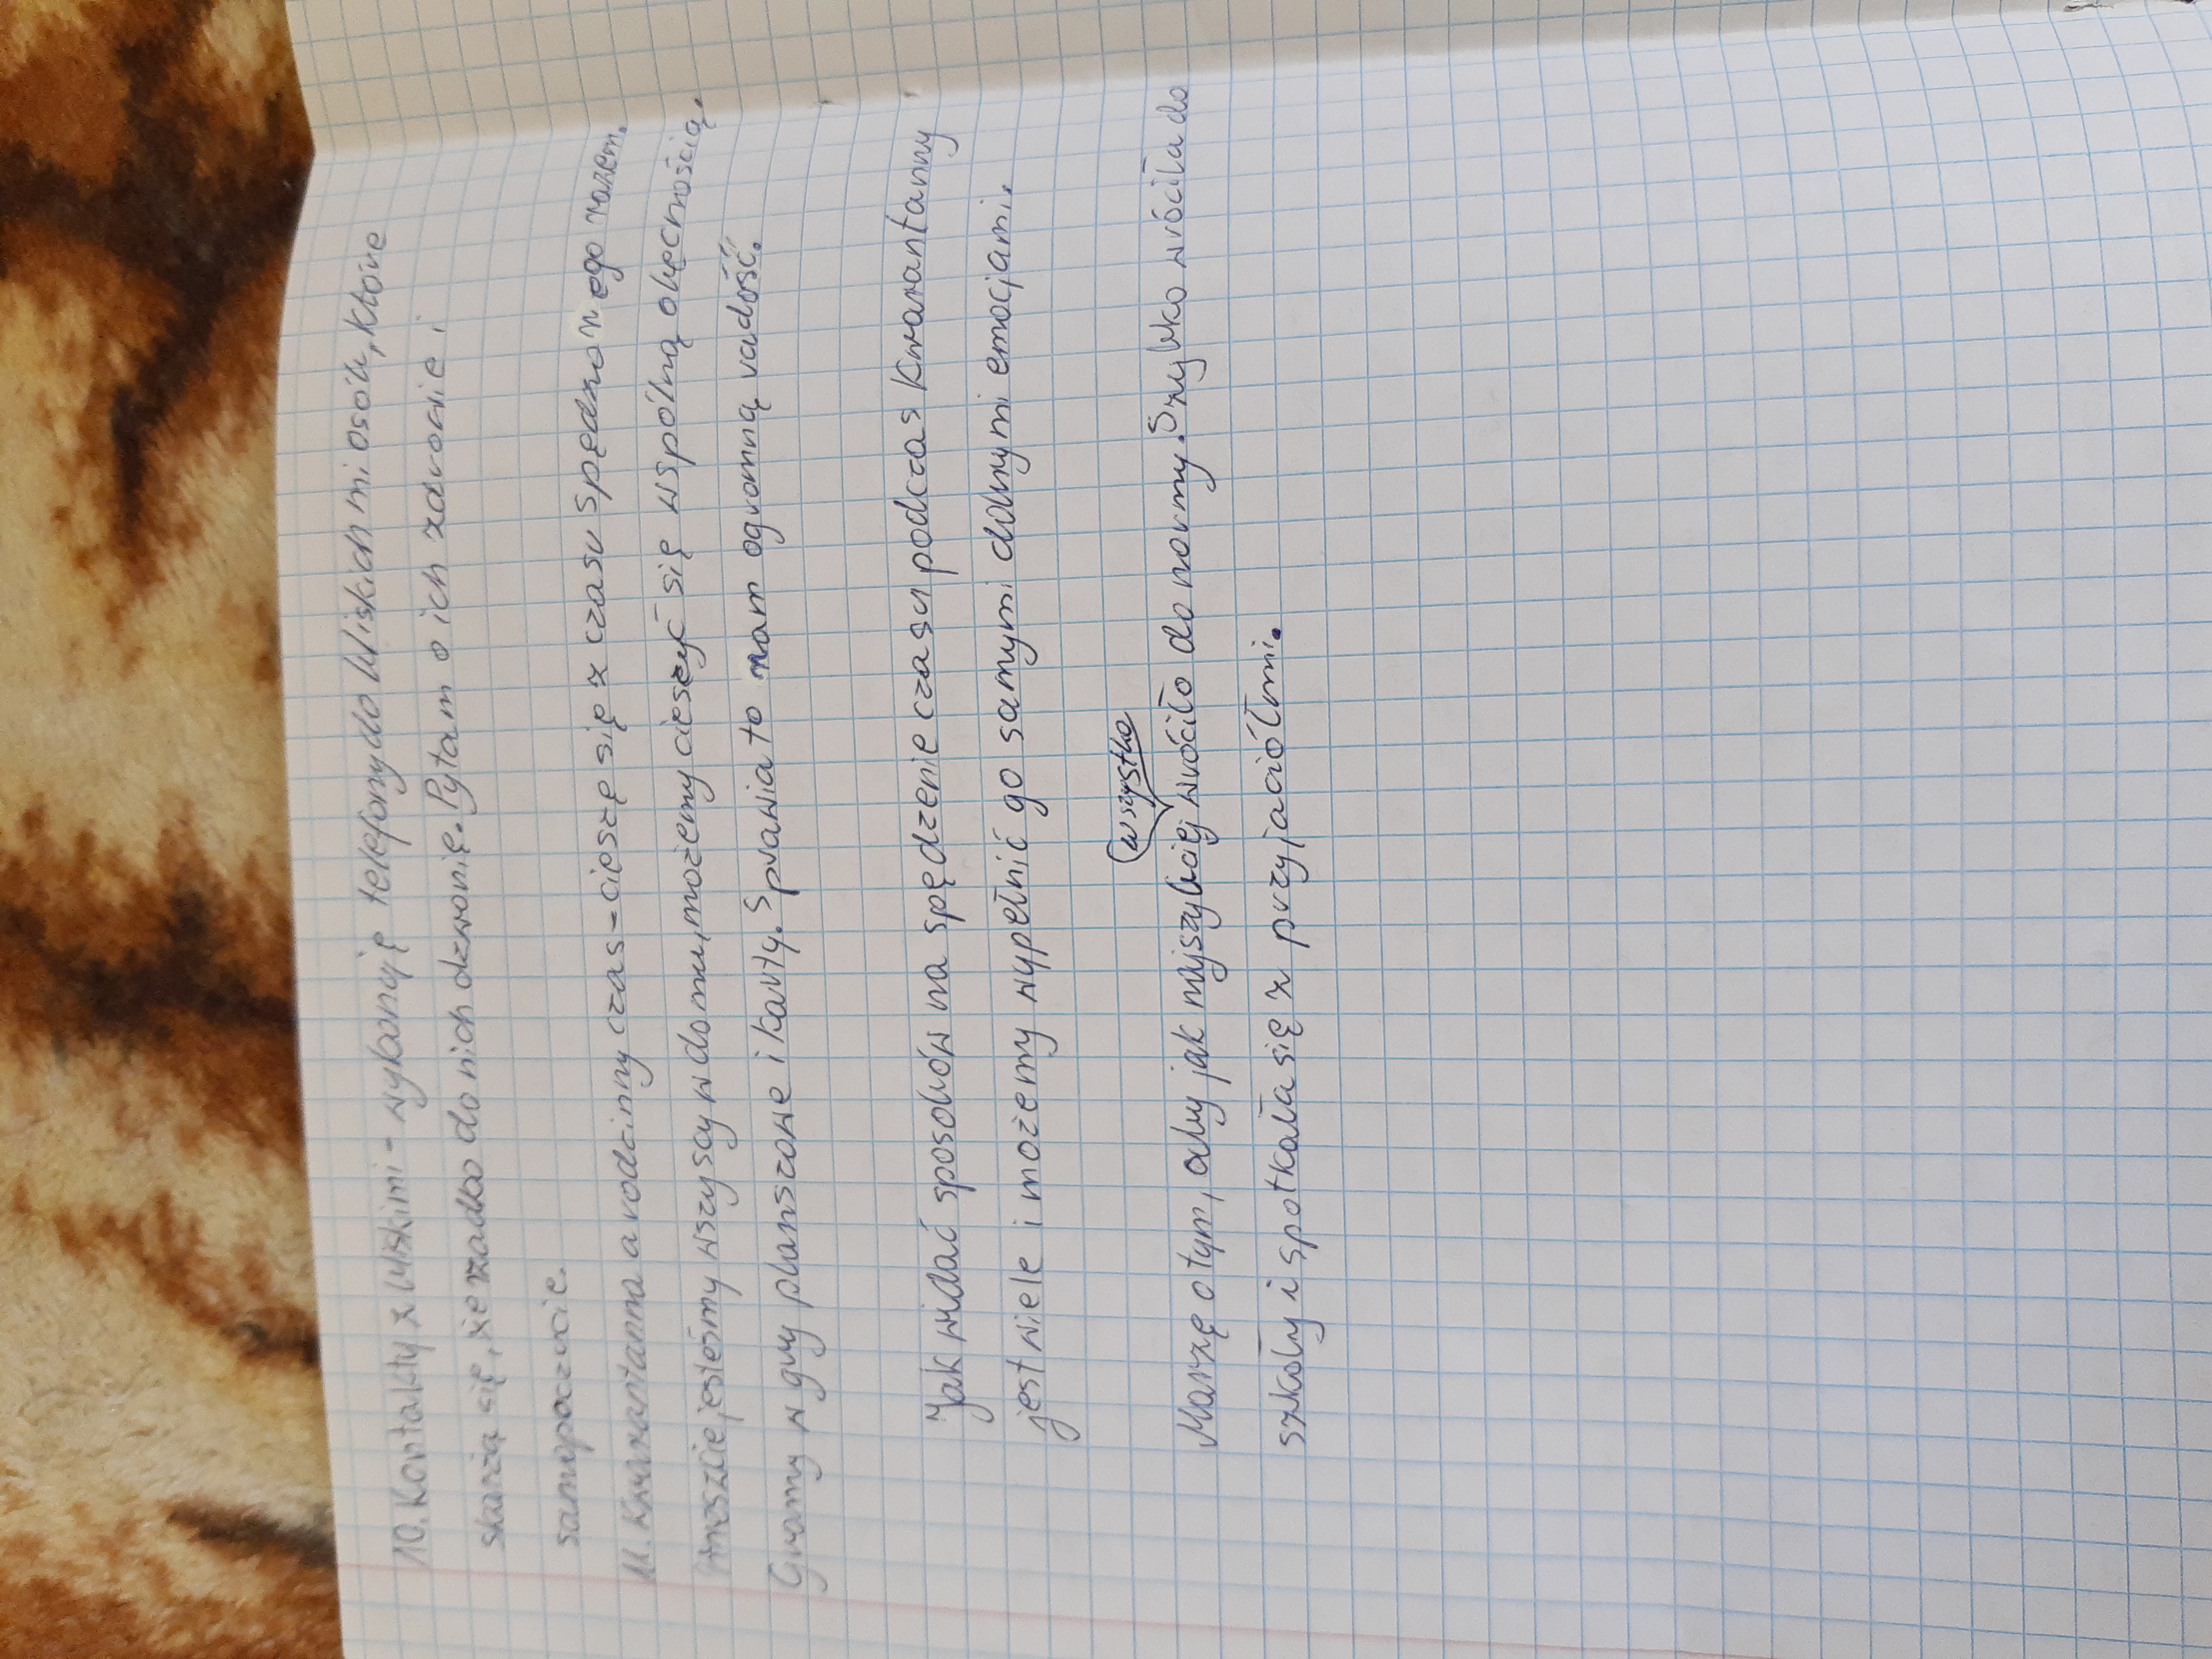 10. Kontakty z bliskimi - wykonuję telefony do bliskich mi osób, które
skarżą się, że rzadko do nich dzwonię. Pytam o ich zdrowie i
samopoczucie.
11. Kwarantanna a rodzinny czas - cieszę się z czasu spędzonego razem.
Wreszcie jesteśmy wszyscy w domu, możemy cieszyć się wspólną obecnością.
Gramy w gry planszowe i karty. Sprawia to nam ogromną radość.
Jak widać sposobów na spędzenie czasu podczas kwarantanny
jest wiele i możemy wypełnić go samymi dobrymi emocjami.
wszystko
Marzę o tym, aby jak najszybciej wróciło do normy. Szybko wróciła do
szkoły i spotkała się z przyjaciółmi.